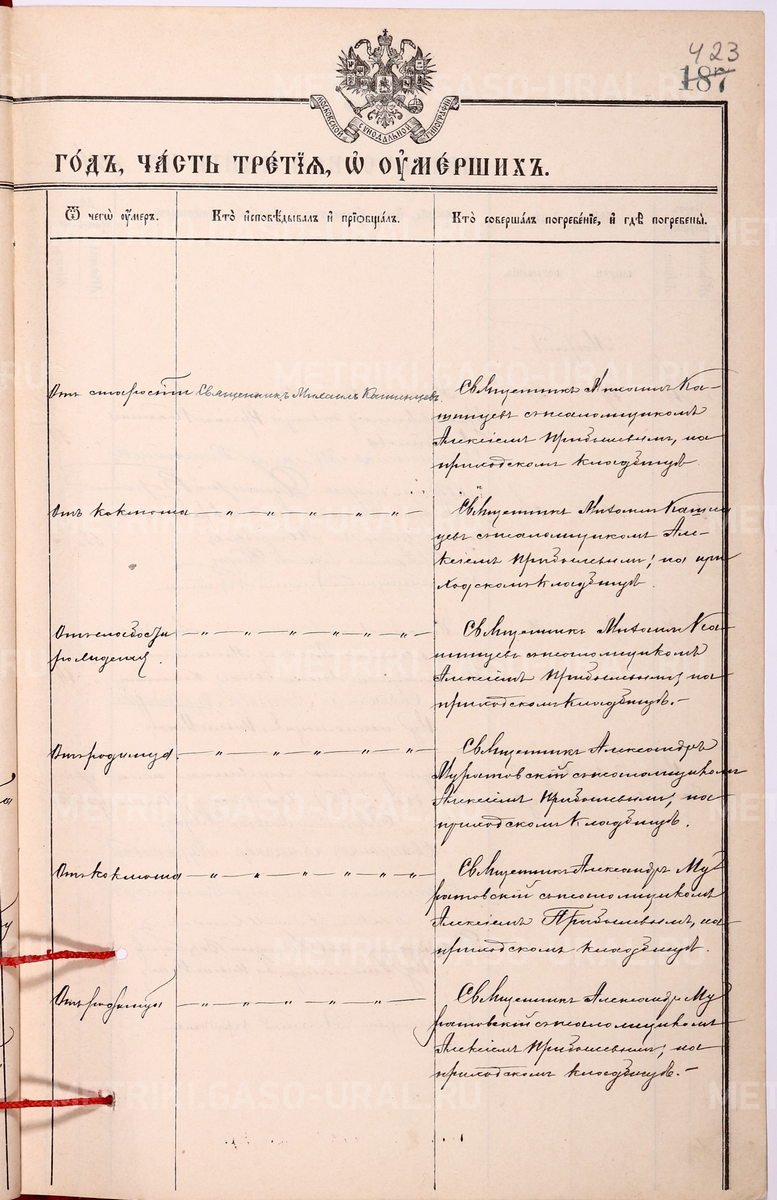 423
187
МОСКОВСКОЙ СѴНОДАЛЬНОЙ ТИПОГРАФІИ
ГО́ДЪ, ЧА́СТЬ ТРЕ́ТІЯ, Ѽ ОУМЕ́РШИХЪ.
Ѿ чегѡ̀ оу́меръ.
Кто̀ и҆сповѣ́дывалъ и҆ прїѡбща́лъ.
Кто̀ соверша́лъ погребе́нїе, и҆ гдѣ̀ погребены̀.
Отъ старости
Священникъ Михаилъ Кашинцевъ
Священникъ Михаилъ Ка-
шинцевъ съ псаломщикомъ
Алексіемъ Прибылевымъ, на
приходскомъ кладбищѣ
Отъ коклюша
— „ — „ — „ — „ — „ —
Священникъ Михаилъ Кашин
цевъ съ псаломщикомъ Але-
ксіемъ Прибылевымъ; на при
ходскомъ кладбищѣ.
Отъ слабости
рожденія.
— „ — „ — „ — „ — „ — „ —
Священникъ Михаилъ Ка-
шинцевъ съ псаломщикомъ
Алексіемъ Прибылевымъ, на
приходскомъ кладбищѣ.-
Отъ родимца.
— „ — „ — „ — „ — „ —
Священникъ Александръ
Муратовскій съ псаломщикомъ
Алексіемъ Прибылевымъ, на
приходскомъ кладбищѣ.
Отъ коклюша
— „ — „ — „ — „ — „ — „
Священникъ Александръ Му
ратовскій съ псаломщикомъ
Алексіемъ Прибылевымъ, на
приходскомъ кладбищѣ.
Отъ родимца
— „ — „ — „ — „ — „ —
Священникъ Александръ Му
ратовскій съ псаломщикомъ
Алексіемъ Прибылевымъ; на
приходскомъ кладбищѣ.-
METRIKI.GASO-URAL.RU